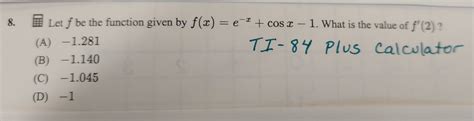 8. Let f be the function given by f(x) = e^{-x} + cos x − 1. What is the value of f′(2)?
(A) −1.281
TI-84 Plus Calculator
(B) −1.140
(C) −1.045
(D) −1